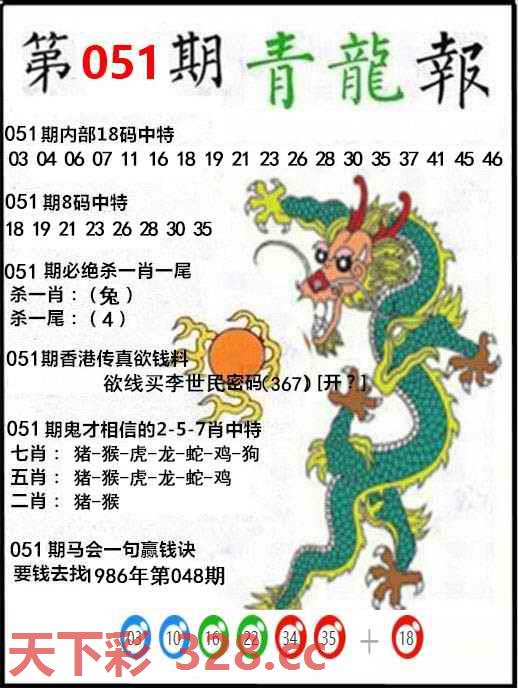 第051期青龍報
051期内部18码中特
03 04 06 07 11 16 18 19 21 23 26 28 30 35 37 41 45 46
051期8码中特
18 19 21 23 26 28 30 35
051期必绝杀一肖一尾
杀一肖：（兔）
杀一尾：（4）
051期香港传真欲钱料
欲线买李世民密码(367)[开?]
051期鬼才相信的2-5-7肖中特
七肖：猪-猴-虎-龙-蛇-鸡-狗
五肖：猪-猴-虎-龙-蛇-鸡
二肖：猪-猴
051期马会一句赢钱诀
要钱去找1986年第048期
03 10 16 22 34 35 + 18
天下彩 328.cc